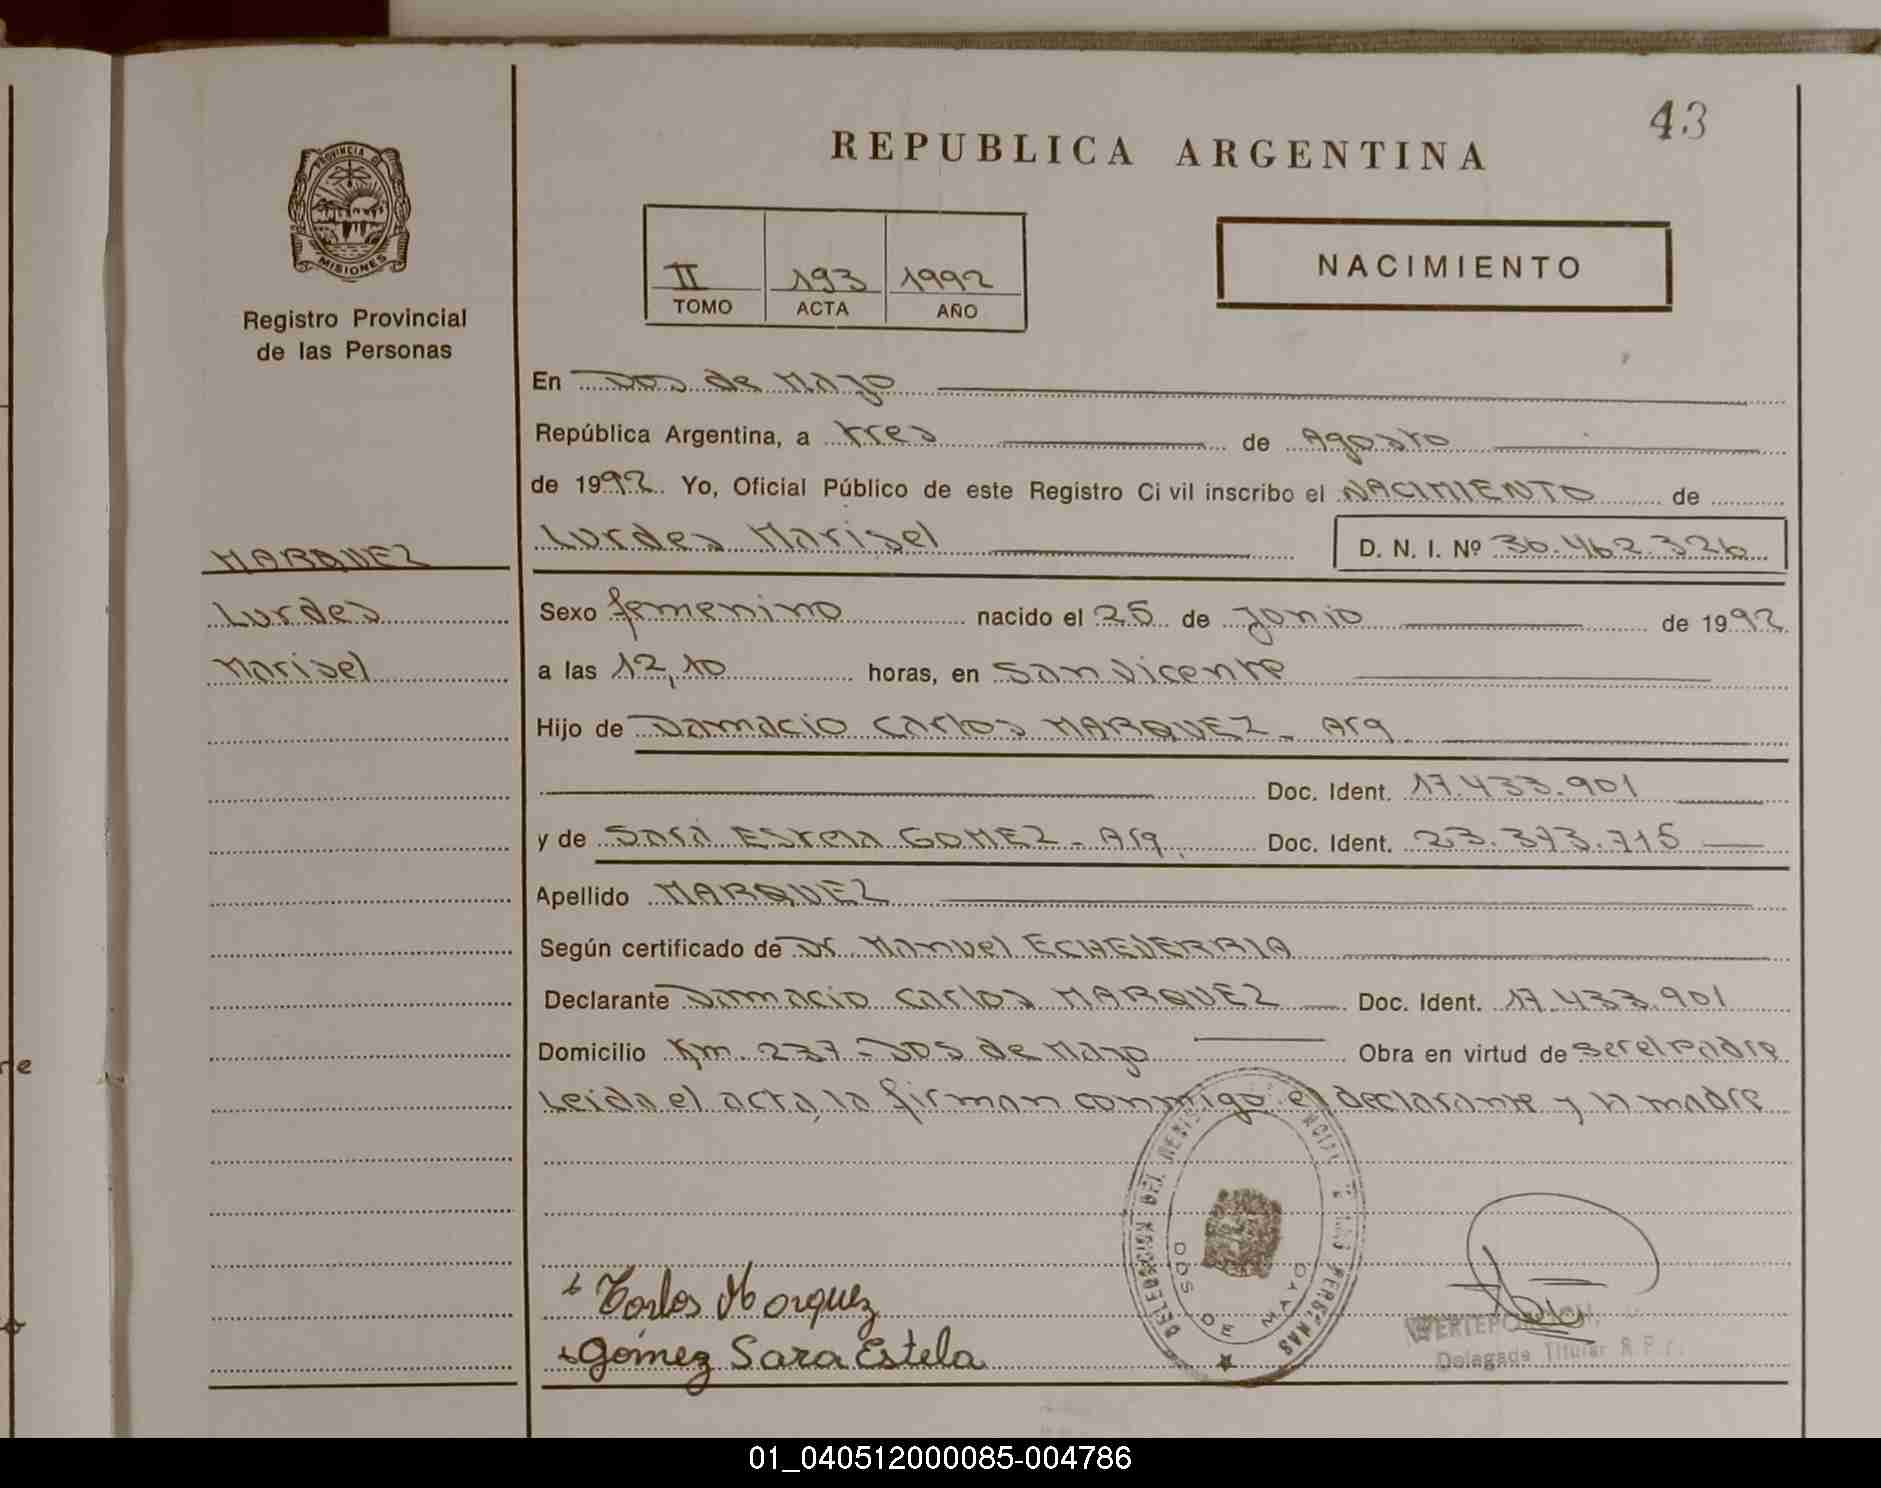 43
REPUBLICA ARGENTINA
PROVINCIA DE
MISIONES
Registro Provincial
de las Personas
II 193 1992
TOMO ACTA AÑO
NACIMIENTO
En Dos de Mayo
República Argentina, a tres de Agosto
de 1992. Yo, Oficial Público de este Registro Civil inscribo el NACIMIENTO de
Lurdes Marisel D. N. I. Nº 36.462.326
MARQUEZ
Lurdes
Marisel
Sexo femenino nacido el 25 de Junio de 1992
a las 12,10 horas, en San Vicente
Hijo de Damacio Carlos MARQUEZ - Arg
Doc. Ident. 17.433.901
y de Sara Estela GOMEZ - Arg. Doc. Ident. 23.373.715
Apellido MARQUEZ
Según certificado de Dr. Manuel ECHEVERRIA
Declarante Damacio Carlos MARQUEZ Doc. Ident. 17.433.901
Domicilio Km. 237 - Dos de Mayo Obra en virtud de ser el Padre
Leida el acta, la firman conmigo el declarante y la madre
DOS DE MAYO
Carlos Marquez
Gómez Sara Estela
Delegada Titular R.P.
01_040512000085-004786